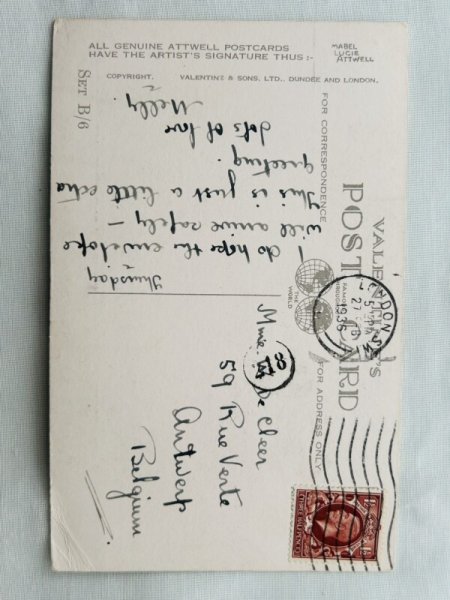 ALL GENUINE ATTWELL POSTCARDS
HAVE THE ARTIST'S SIGNATURE THUS :-
MABEL
LUCIE
ATTWELL
COPYRIGHT. VALENTINE & SONS, LTD., DUNDEE AND LONDON.
SET B/6
VALENTINE'S
POST CARD
FOR CORRESPONDENCE
FAMOUS
THROUGHOUT
THE
WORLD
FOR ADDRESS ONLY
Thursday
I do hope the envelope
will arrive safely –
This is just a little extra
greeting.
Lots of love
Nelly.
LONDON S.W.
5 15PM
27
1936
78
Mme. De Cleer
59 Rue Verte
Antwerp
Belgium.
THREE HALFPENCE